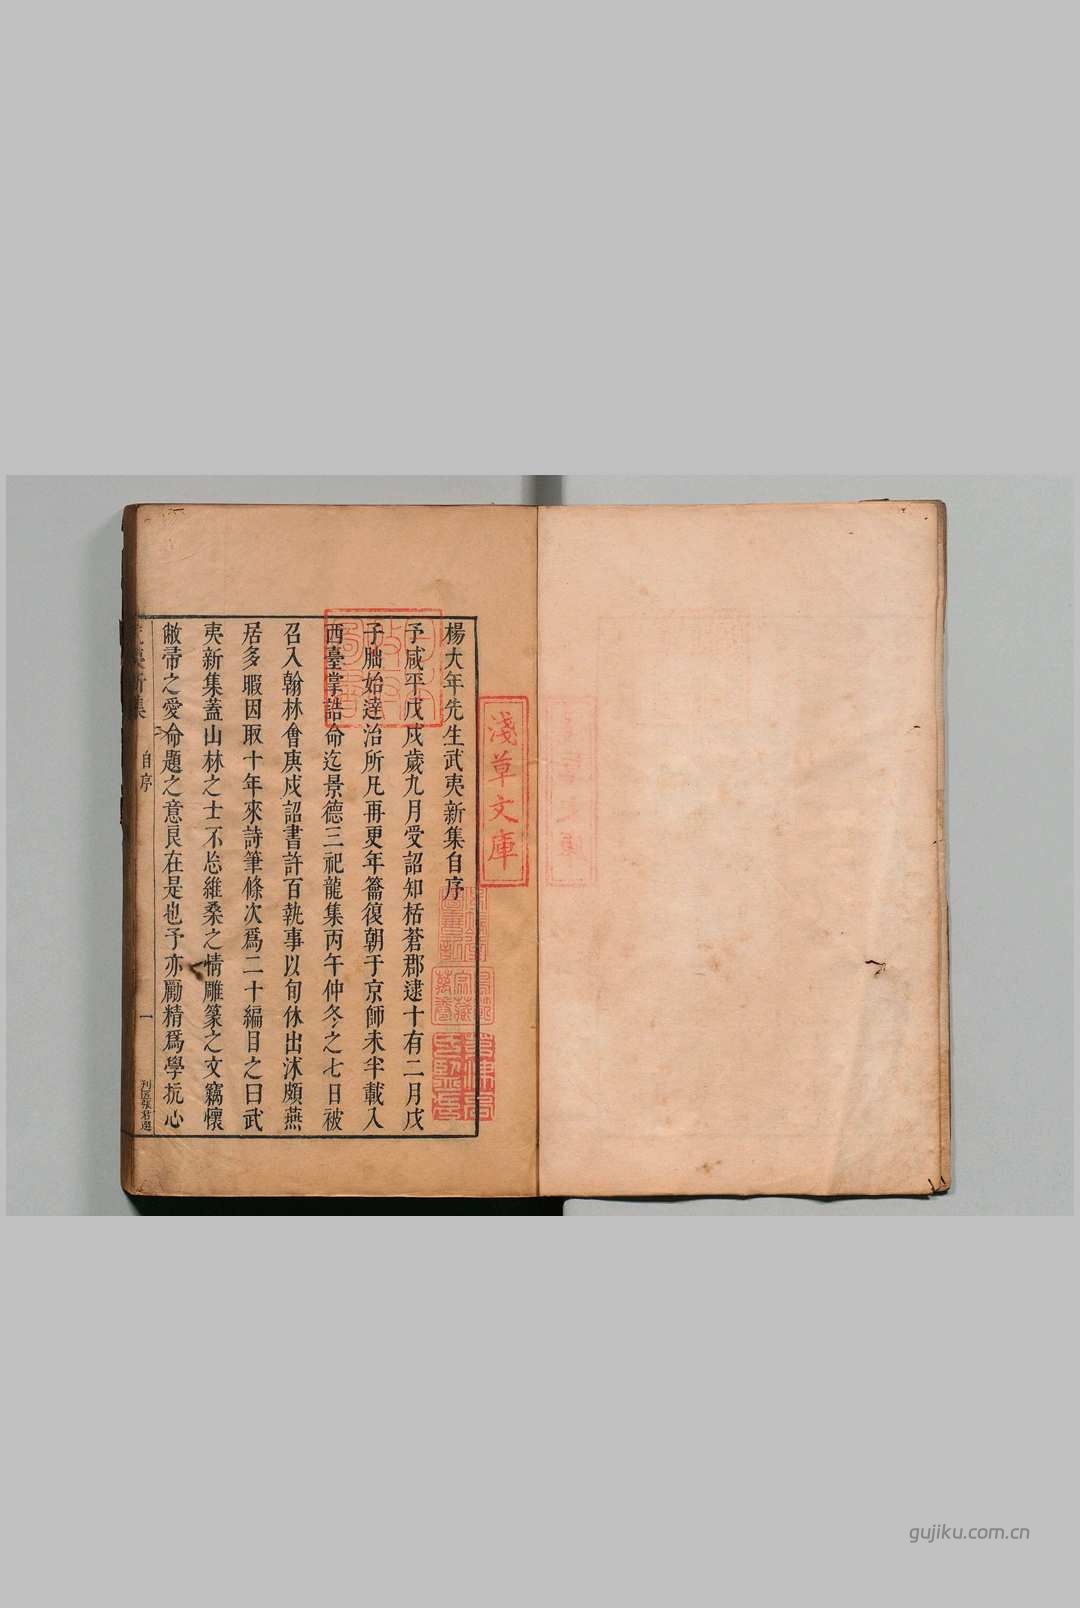 楊大年先生武夷新集自序
予咸平戊戌歲九月受詔知栝蒼郡逮十有二月戊
子朏始達治所凡再更年籥復朝于京師未半載入
西臺掌誥命迄景德三祀龍集丙午仲冬之七日被
召入翰林會庚戌詔書許百執事以旬休出沐頗燕
居多暇因取十年來詩筆條次爲二十編目之曰武
夷新集蓋山林之士不忘維桑之情雕篆之文竊懷
敝帚之愛命題之意良在是也予亦勵精爲學抗心
武夷新集
自序
一
淺草文庫
gujiku.com.cn